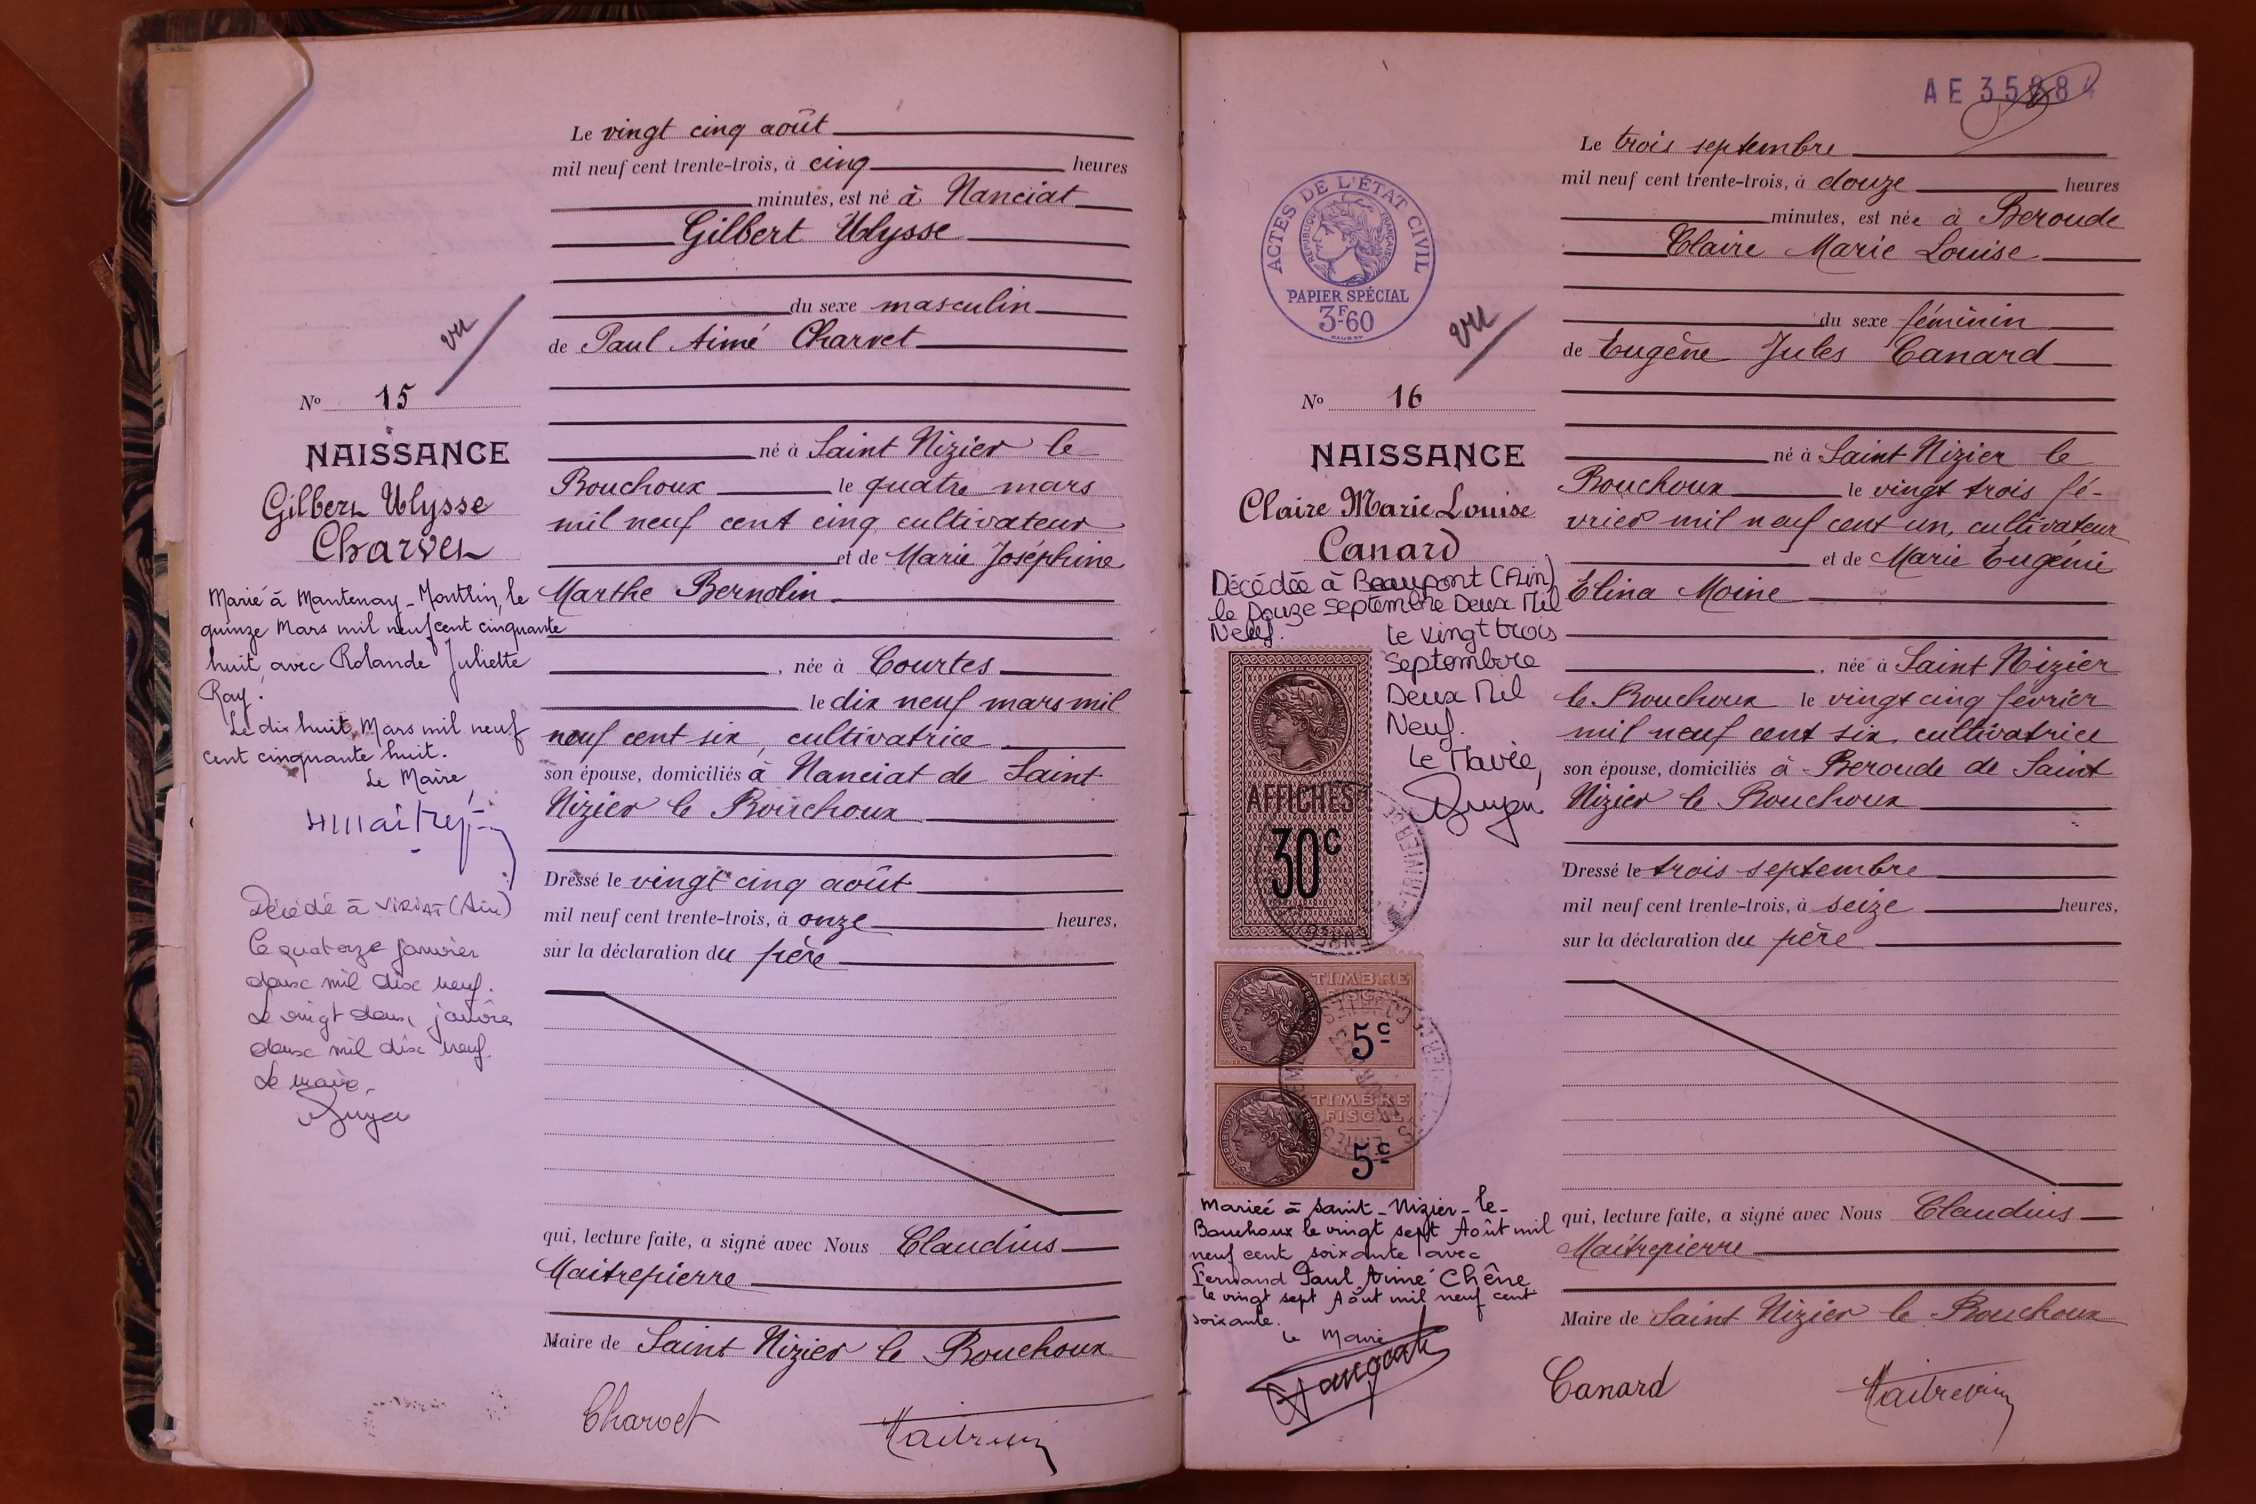 Le vingt cinq août
mil neuf cent trente-trois, à cinq heures
minutes, est né à Nanciat
Gilbert Ulysse
du sexe masculin
de Paul Aimé Charvet
né à Saint Nizier le
Bouchoux le quatre mars
mil neuf cent cinq cultivateur
et de Marie Joséphine
Marthe Bernolin
, née à Courtes
le dix neuf mars mil
neuf cent six, cultivatrice
son épouse, domiciliés à Nanciat de Saint
Nizier le Bouchoux
Dressé le vingt cinq août
mil neuf cent trente-trois, à onze heures,
sur la déclaration du père
qui, lecture faite, a signé avec Nous Claudius
Maitrepierre
Maire de Saint Nizier le Bouchoux
Charvet
vu
No 15
NAISSANCE
Gilbert Ulysse
Charvet
Marié à Mantenay-Montlin, le
quinze Mars mil neuf cent cinquante
huit, avec Rolande Juliette
Ray.
Le dix huit Mars mil neuf
cent cinquante huit.
Le Maire,
Décédé à VIRIAT (Ain)
le quatorze janvier
deux mil dix neuf.
Le vingt deux janvier
deux mil dix neuf.
Le maire,
AE 35884
Le trois septembre
mil neuf cent trente-trois, à douze heures
minutes, est née à Beroude
Claire Marie Louise
du sexe féminin
de Eugène Jules Canard
né à Saint Nizier le
Bouchoux le vingt trois fé-
vrier mil neuf cent un, cultivateur
et de Marie Eugénie
Elina Moine
, née à Saint Nizier
le Bouchoux le vingt cinq février
mil neuf cent six, cultivatrice
son épouse, domiciliés à Beroude de Saint
Nizier le Bouchoux
Dressé le trois septembre
mil neuf cent trente-trois, à seize heures,
sur la déclaration du père
qui, lecture faite, a signé avec Nous Claudius
Maitrepierre
Maire de Saint Nizier le Bouchoux
Canard
ACTES DE L'ÉTAT CIVIL
RÉPUBLIQUE FRANÇAISE
PAPIER SPÉCIAL
3F60
vu
No 16
NAISSANCE
Claire Marie Louise
Canard
Décédée à Beaupont (Ain)
le Douze Septembre Deux Mil
Neuf.
le vingt trois
Septembre
Deux Mil
Neuf.
Le Maire,
AFFICHES
30c
TIMBRE
FISCAL
5c
TIMBRE
FISCAL
5c
Mariée à Saint-Nizier-le-
Bouchoux le vingt sept Août mil
neuf cent soixante avec
Fernand Paul Aimé Chêne
le vingt sept Août mil neuf cent
soixante.
Le Maire